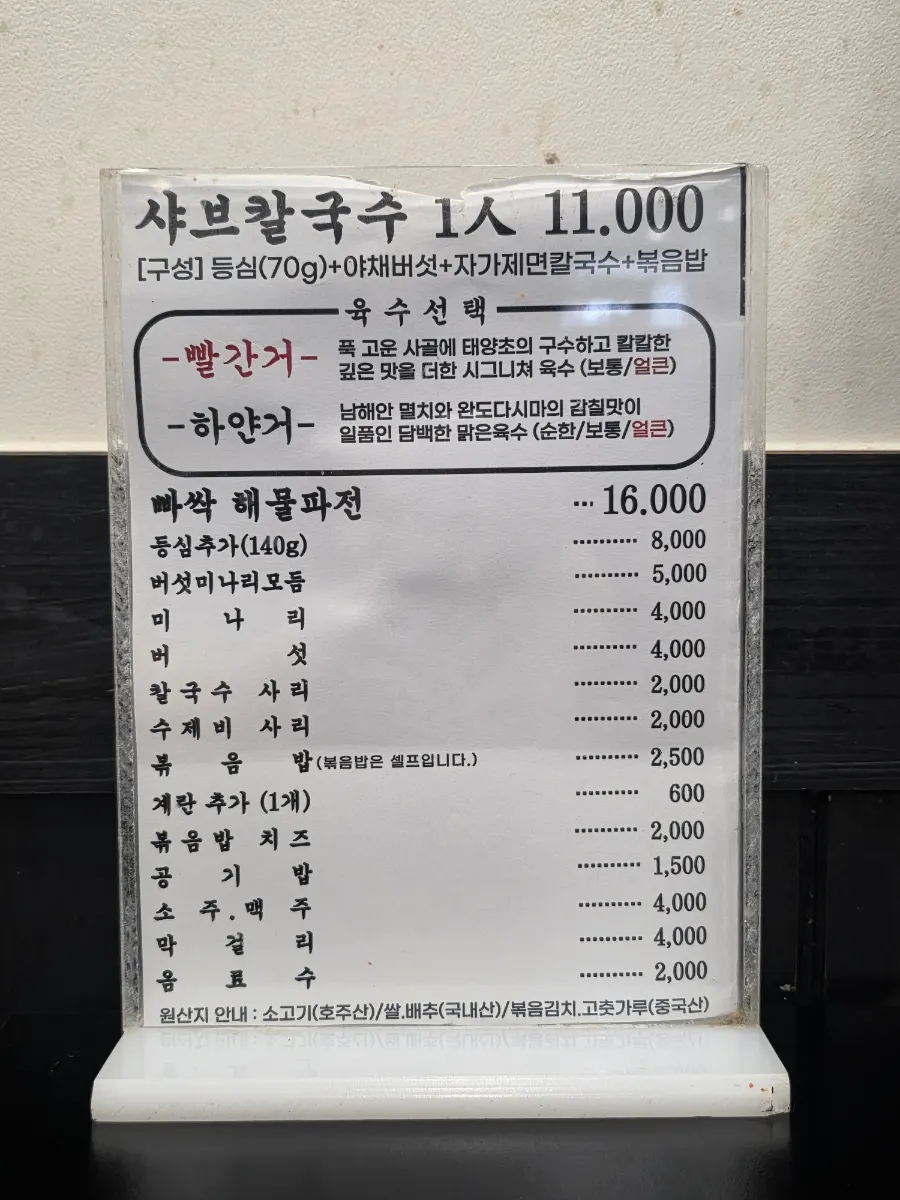 샤브칼국수 1人 11.000
[구성] 등심(70g)+야채버섯+자가제면칼국수+볶음밥
육수선택
-빨간거- 푹 고운 사골에 태양초의 구수하고 칼칼한
깊은 맛을 더한 시그니쳐 육수 (보통/얼큰)
-하얀거- 남해안 멸치와 완도다시마의 감칠맛이
일품인 담백한 맑은육수 (순한/보통/얼큰)
빠싹 해물파전 ··· 16.000
등심추가(140g) ·········· 8,000
버섯미나리모듬 ·········· 5,000
미나리 ·········· 4,000
버섯 ·········· 4,000
칼국수 사리 ·········· 2,000
수제비 사리 ·········· 2,000
볶음밥(볶음밥은 셀프입니다.) ·········· 2,500
계란 추가 (1개) ·········· 600
볶음밥 치즈 ·········· 2,000
공기밥 ·········· 1,500
소주.맥주 ·········· 4,000
막걸리 ·········· 4,000
음료수 ·········· 2,000
원산지 안내 : 소고기(호주산)/쌀.배추(국내산)/볶음김치.고춧가루(중국산)